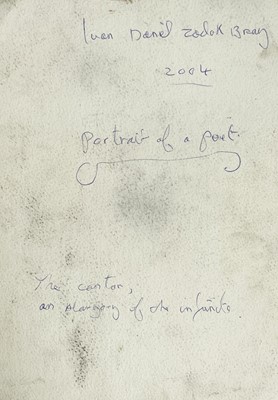 Ivan Daniel Zadok Bray
2004
Portrait of a poet.
The cantor,
an of the infinite.